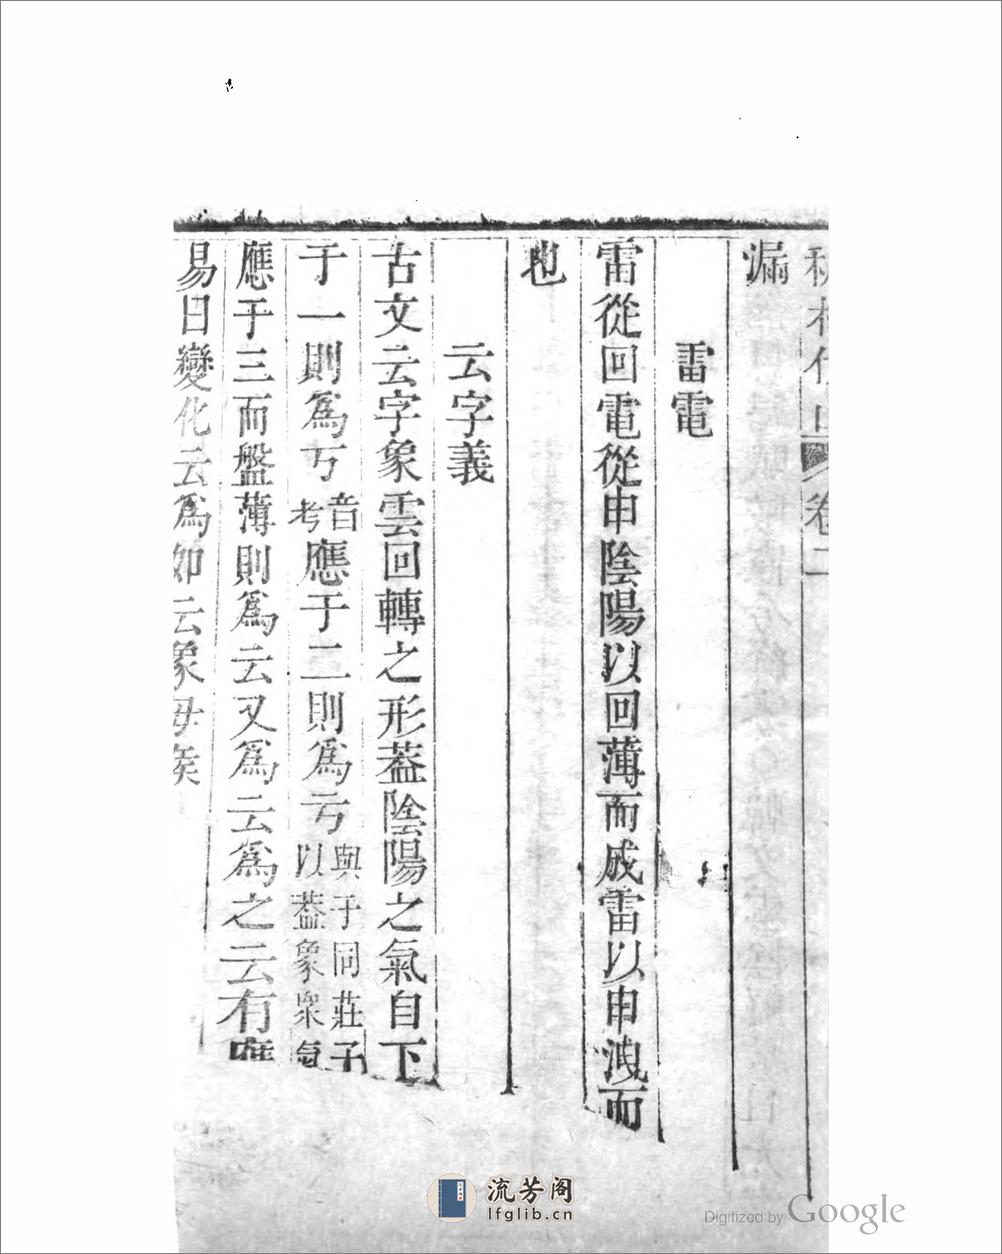 卷二
漏
雷電
雷從回電從申陰陽以回薄而成雷以申洩而
也
云字義
古文云字象雲回轉之形葢陰陽之氣自下
于一則爲丂音考應于二則爲亏與于同莊子以葢象衆氣
應于三而盤薄則爲云又爲云爲之云有應
易曰變化云爲如云象毋矣
流芳阁
lfglib.cn
Digitized by Google